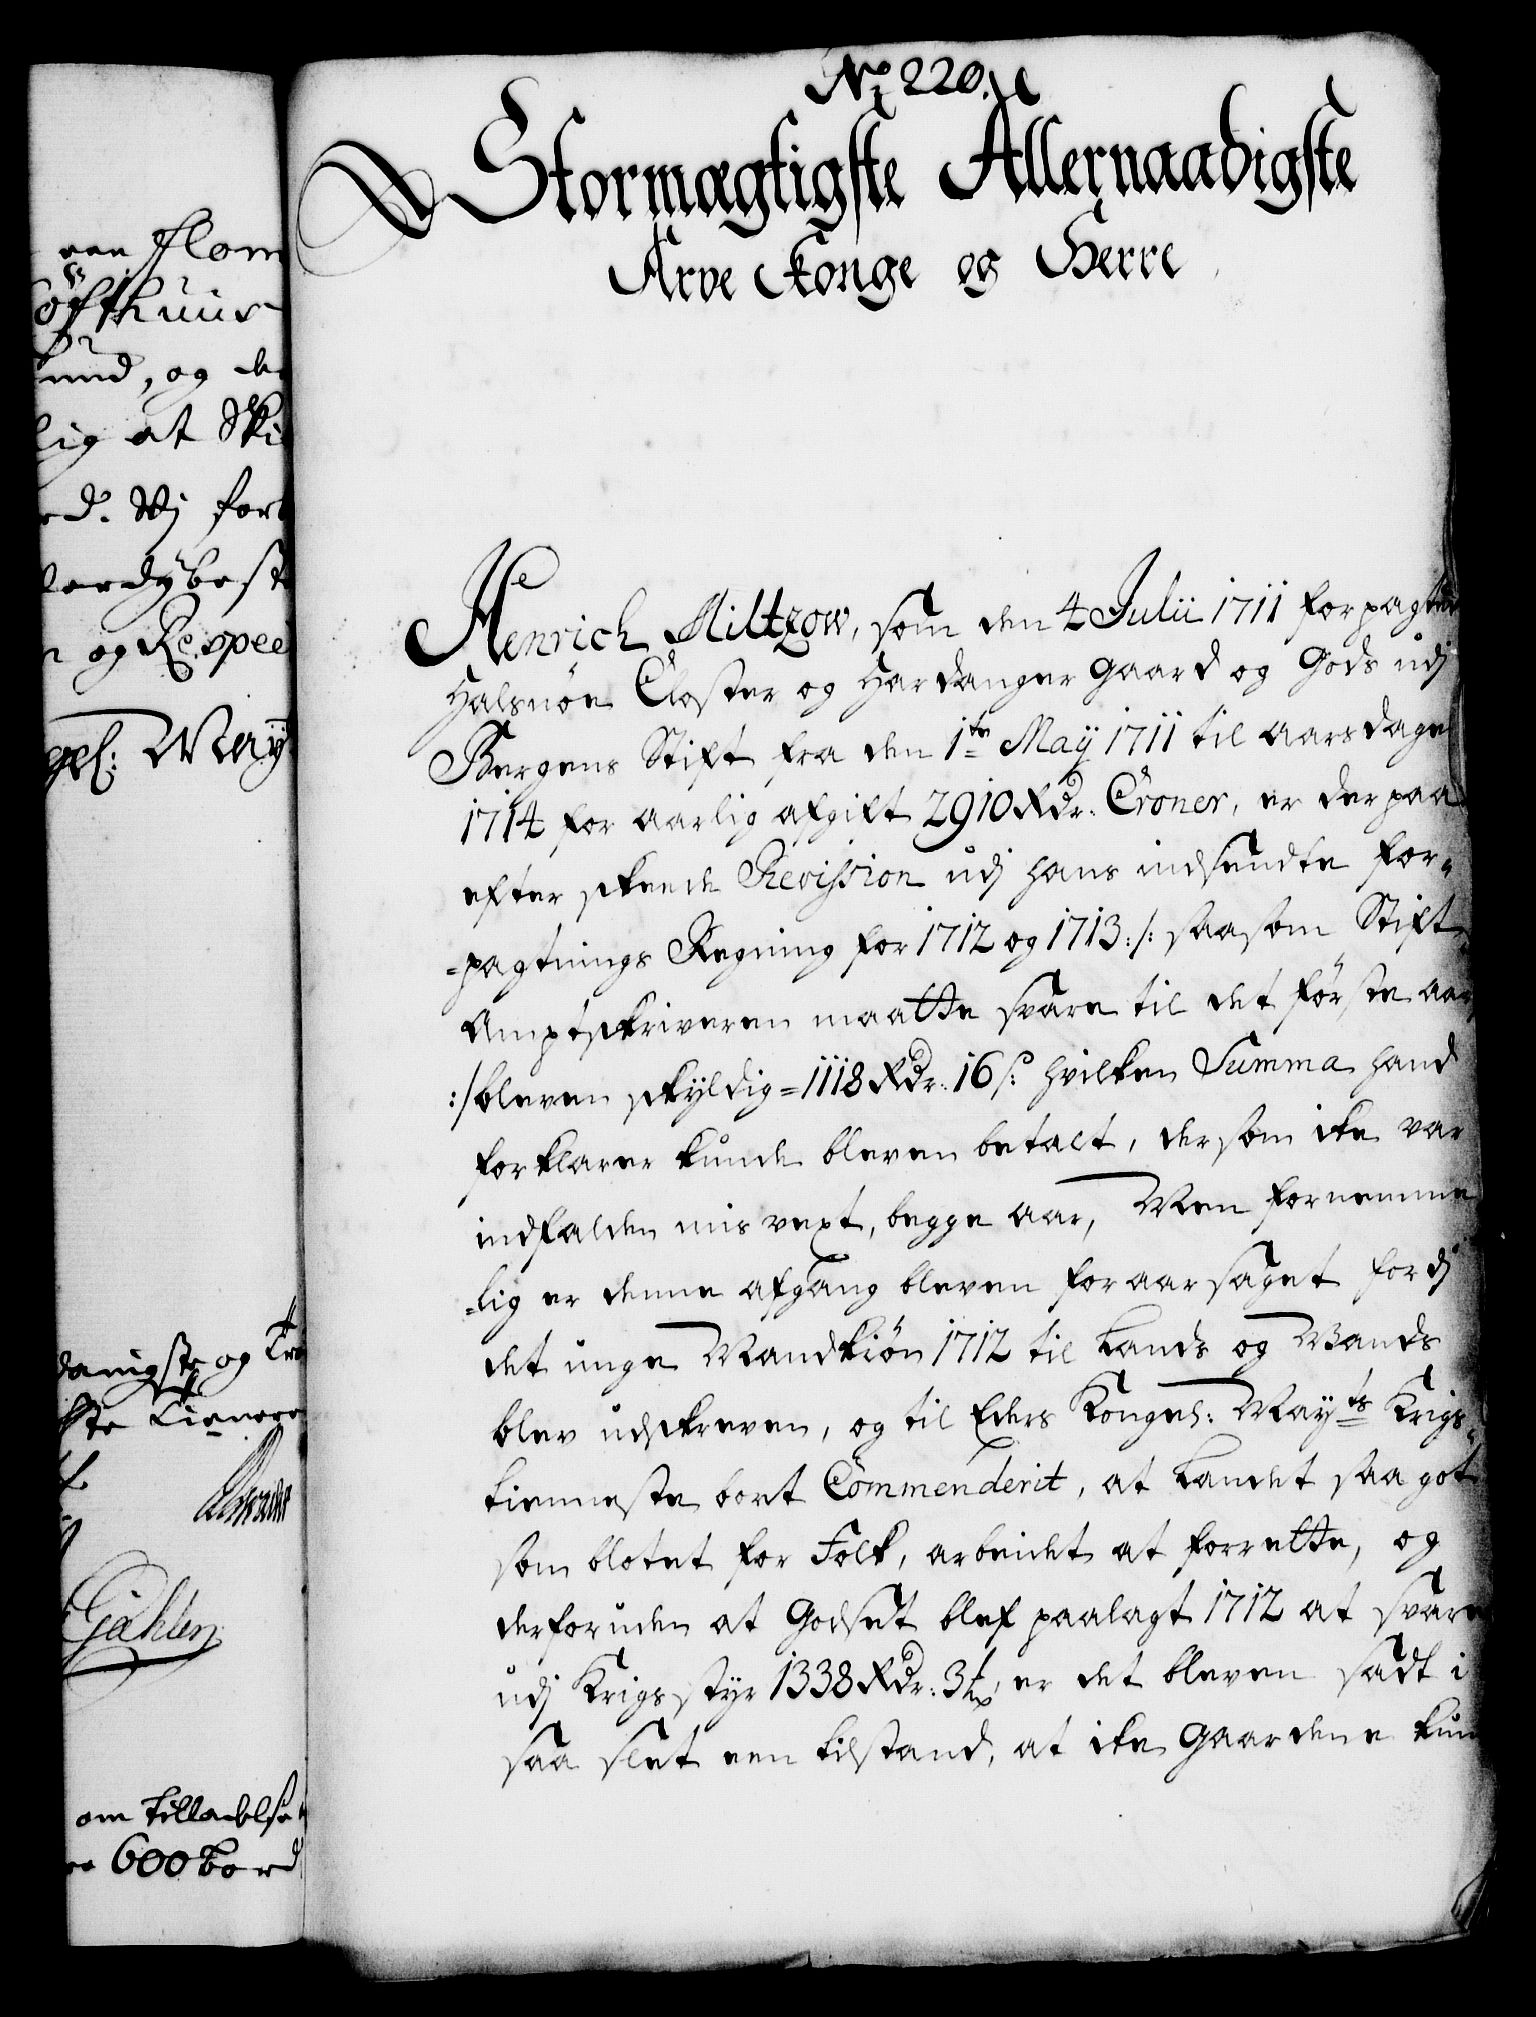 No 220.
Stormægtigste Allernaadigste
Arve Konge og Herre
Henrich Miltzow, som den 4 Julii 1711 forpagtede
Halsnöe Closter og Hardanger gaard og Gods udj
Bergens Stift fra den 1te Maÿ 1711 til Aarsdagen
1714 for aarlig afgift 2910 Rdr. Croner, er derpaa
efter skeede Revission udj hans indsendte for-
-pagtnings Regning for 1712 og 1713 :/: saasom Stift
Amptskriveren maatte svare til det förste aar
:/ bleven skÿldig = 1118 Rdr. 16 s: hvilken Summa hand
forklarer kunde bleven betalt, dersom ike var
indfalden misvext, begge aar, Men fornemme
-lig er denne afgang bleven foraarsaget fordj
det unge Mandkiön 1712 til Lands og Vands
blev udskreven, og til Eders Kongel: Mayts Krigs-
tienneste bort Commenderit, at Landet saa got
som blotet for Folk, arbeidet at forrette, og
derforuden at Godset blef paalagt 1712 at svare
udj Krigsstyr 1338 Rdr: 3 , er det bleven sadt i
saa slet een tilstand, at ike Gaardene kun
een
og de
lig at
og
Maÿ
og
Gæhlen
om tilladelse
600 bord